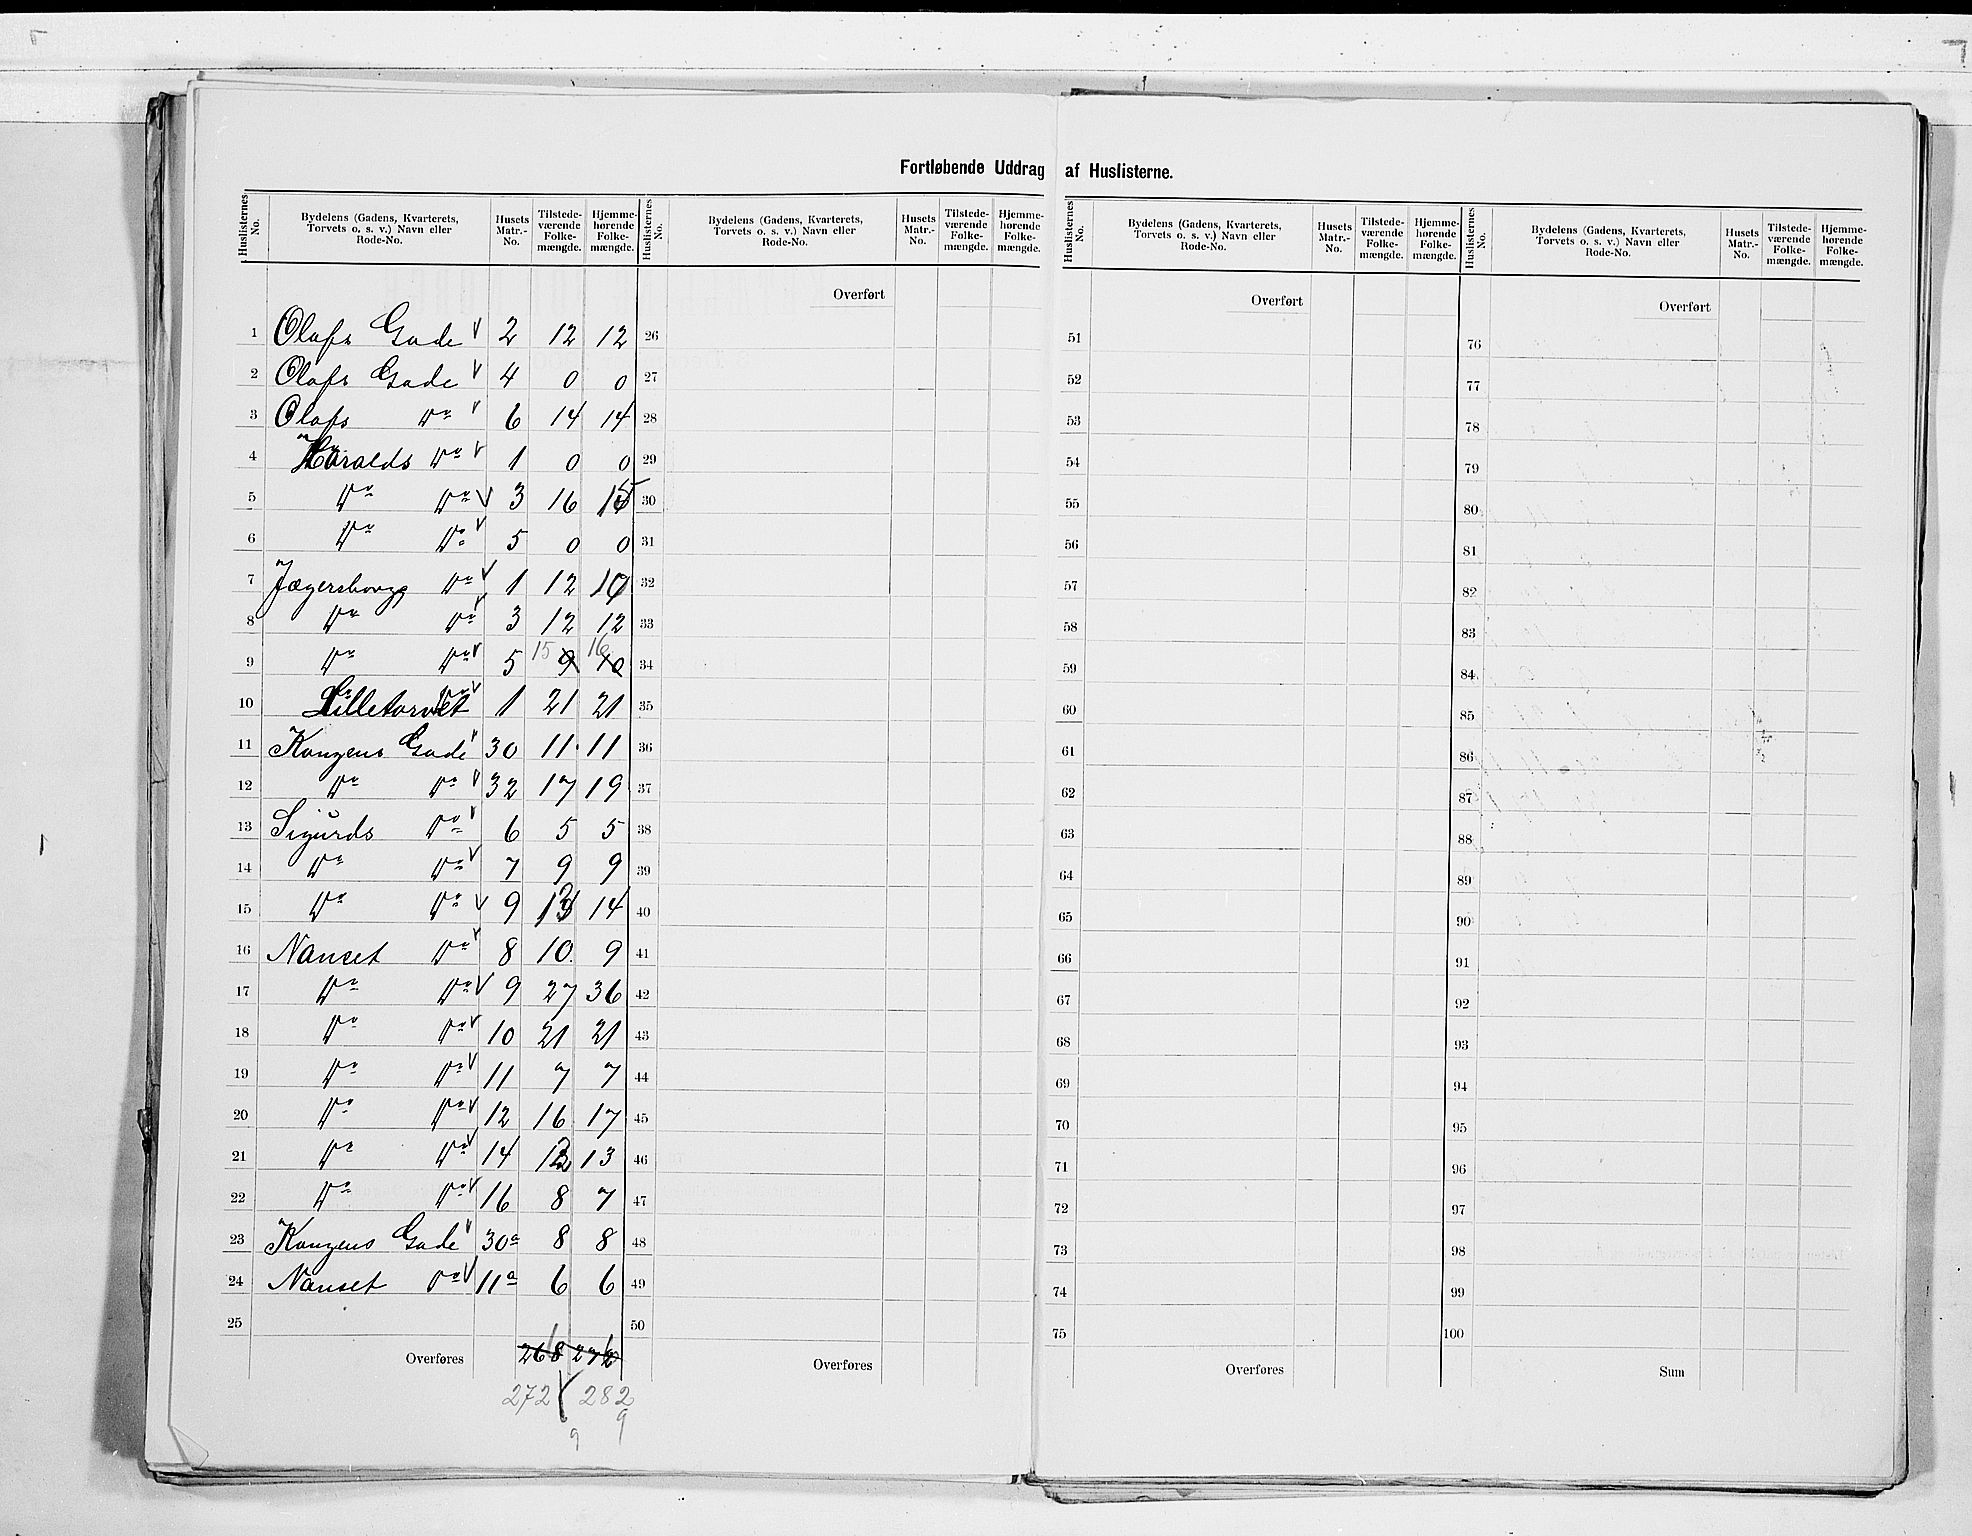 Fortløbende Uddrag af Huslisterne.
Huslisternes No. | Bydelens (Gadens, Kvarterets, Torvets o. s. v.) Navn eller Rode-No. | Husets Matr.-No. | Tilstedeværende Folkemængde. | Hjemmehørende Folkemængde.
1 Olafs Gade v 2 12 12
2 Olafs Gade v 4 0 0
3 Olafs Do v 6 14 14
4 Haralds Do v 1 0 0
5 Do Do v 3 16 15
6 Do Do v 5 0 0
7 Jægersborgs Do v 1 12 10
8 Do Do v 3 12 12
9 Do Do v 5 15 9 16 10
10 Lilletorvet v 1 21 21
11 Kongens Gade v 30 11 11
12 Do Do v 32 17 19
13 Sigurds Do v 6 5 5
14 Do Do v 7 9 9
15 Do Do v 9 13 14
16 Nanset Do v 8 10 9
17 Do Do v 9 27 36
18 Do Do v 10 21 21
19 Do Do v 11 7 7
20 Do Do v 12 16 17
21 Do Do v 14 13
22 Do Do v 16 8 7
23 Kongens Gade v 30a 8 8
24 Nanset Do v 11a 6 6
25
Overføres 268 272
272 282
9 9
Huslisternes No. | Bydelens (Gadens, Kvarterets, Torvets o. s. v.) Navn eller Rode-No. | Husets Matr.-No. | Tilstedeværende Folkemængde. | Hjemmehørende Folkemængde.
Overført
26
27
28
29
30
31
32
33
34
35
36
37
38
39
40
41
42
43
44
45
46
47
48
49
50
Overføres
Huslisternes No. | Bydelens (Gadens, Kvarterets, Torvets o. s. v.) Navn eller Rode-No. | Husets Matr.-No. | Tilstedeværende Folkemængde. | Hjemmehørende Folkemængde.
Overført
51
52
53
54
55
56
57
58
59
60
61
62
63
64
65
66
67
68
69
70
71
72
73
74
75
Overføres
Huslisternes No. | Bydelens (Gadens, Kvarterets, Torvets o. s. v.) Navn eller Rode-No. | Husets Matr.-No. | Tilstedeværende Folkemængde. | Hjemmehørende Folkemængde.
Overført
76
77
78
79
80
81
82
83
84
85
86
87
88
89
90
91
92
93
94
95
96
97
98
99
100
Sum